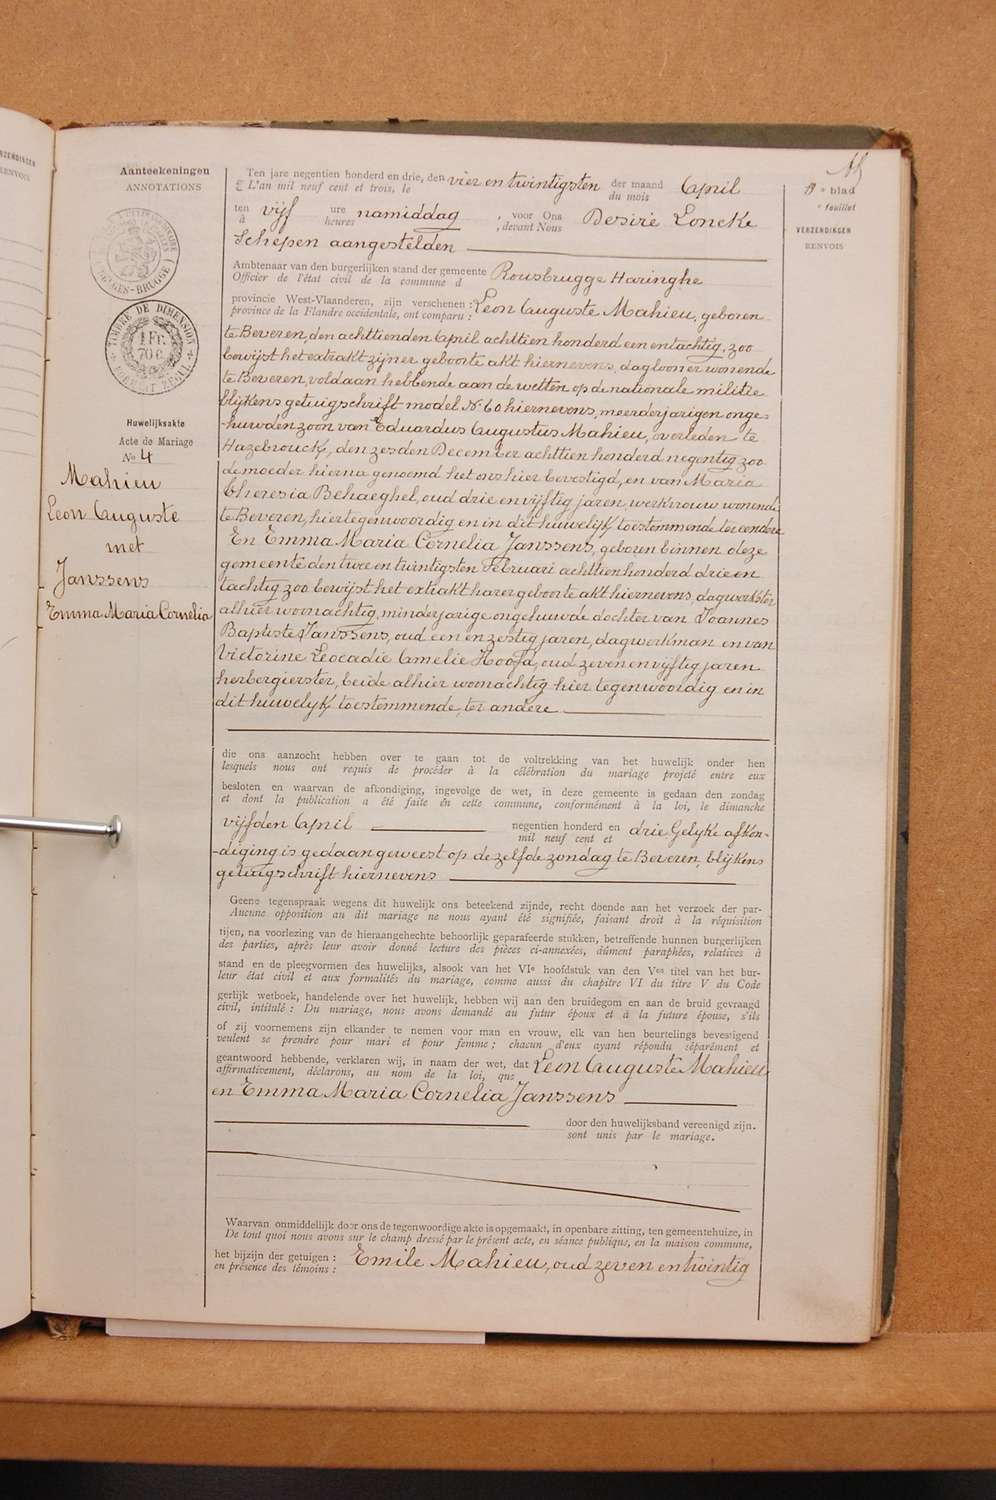 Aanteekeningen
ANNOTATIONS
TIMBRE DE DIMENSION
1 Fr.
70 C.
Huwelijksakte
Acte de Mariage
No 4
Mahieu
Leon Auguste
met
Janssens
Emma Maria Cornelia
Ten jare negentien honderd en drie, den vier en twintigsten der maand April
L'an mil neuf cent et trois, le du mois
ten vijf ure namiddag, voor Ons Desiré Loncke
à heures , devant Nous
Schepen aangestelden
Ambtenaar van den burgerlijken stand der gemeente Rousbrugge Haringhe
Officier de l'état civil de la commune d
provincie West-Vlaanderen, zijn verschenen : Leon Auguste Mahieu, geboren
province de la Flandre occidentale, ont comparu :
te Beveren, den achttienden April achttien honderd een en tachtig, zoo
bewijst het extrakt zijner geboorte akt hiernevens, daglooner wonende
te Beveren, voldaan hebbende aan de wetten op de nationale militie
blijkens getuigschrift model No 60 hiernevens, meerderjarigen onge-
huwden zoon van Eduardus Augustus Mahieu, overleden te
Hazebrouck, den zesden December achttien honderd negentig zoo
de moeder hierna genoemd het ons hier bevestigd, en van Maria
Theresia Behaeghel, oud drie en vijftig jaren, werkvrouw wonende
te Beveren, hiertegenwoordig en in dit huwelijk toestemmende ter eendere
En Emma Maria Cornelia Janssens, geboren binnen deze
gemeente den twee en twintigsten Februari achttien honderd drie en
tachtig zoo bewijst het extrakt harer geboorte akt hiernevens, dagwerkster
alhier woonachtig, minderjarige ongehuwde dochter van Joannes
Baptiste Janssens, oud een en zestig jaren, dagwerkman en van
Victorine Leocadie Amelie Hoofd, oud zeven en vijftig jaren
herbergierster, beide alhier woonachtig hier tegenwoordig en in
dit huwelijk toestemmende, ter andere
die ons aanzocht hebben over te gaan tot de voltrekking van het huwelijk onder hen
lesquels nous ont requis de procéder à la célébration du mariage projeté entre eux
besloten en waarvan de afkondiging, ingevolge de wet, in deze gemeente is gedaan den zondag
et dont la publication a été faite en cette commune, conformément à la loi, le dimanche
vijfden April negentien honderd en drie Gelyke afkon-
mil neuf cent et
-diging is gedaan geweest op dezelfde zondag te Beveren, blijkens
getuigschrift hiernevens
Geene tegenspraak wegens dit huwelijk ons beteekend zijnde, recht doende aan het verzoek der par-
Aucune opposition au dit mariage ne nous ayant été signifiée, faisant droit à la réquisition
tijen, na voorlezing van de hieraangehechte behoorlijk geparafeerde stukken, betreffende hunnen burgerlijken
des parties, après leur avoir donné lecture des pièces ci-annexées, dûment paraphées, relatives à
stand en de pleegvormen des huwelijks, alsook van het VIe hoofdstuk van den Ven titel van het bur-
leur état civil et aux formalités du mariage, comme aussi du chapitre VI du titre V du Code
gerlijk wetboek, handelende over het huwelijk, hebben wij aan den bruidegom en aan de bruid gevraagd
civil, intitulé : Du mariage, nous avons demandé au futur époux et à la future épouse, s'ils
of zij voornemens zijn elkander te nemen voor man en vrouw, elk van hen beurtelings bevestigend
veulent se prendre pour mari et pour femme ; chacun d'eux ayant répondu séparément et
geantwoord hebbende, verklaren wij, in naam der wet, dat Leon Auguste Mahieu
affirmativement, déclarons, au nom de la loi, que
en Emma Maria Cornelia Janssens
door den huwelijksband vereenigd zijn.
sont unis par le mariage.
Waarvan onmiddellijk door ons de tegenwoordige akte is opgemaakt, in openbare zitting, ten gemeentehuize, in
De tout quoi nous avons sur le champ dressé par le présent acte, en séance publique, en la maison commune,
het bijzijn der getuigen : Emile Mahieu, oud zeven en twintig
en présence des témoins :
e blad
e feuillet
VERZENDINGEN
RENVOIS